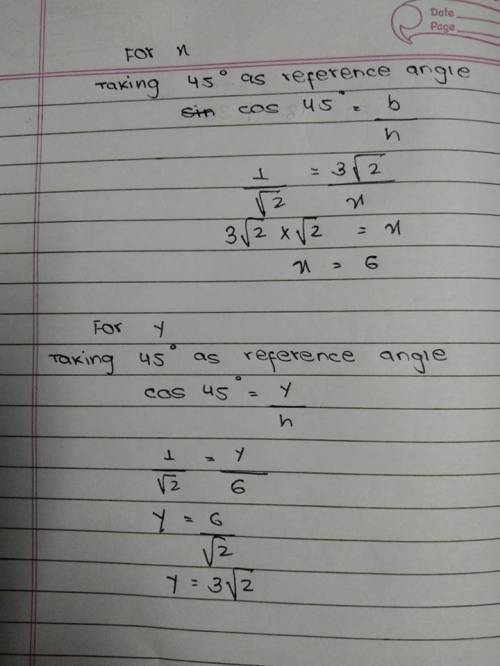 Date
Page
For x
Taking 45° as reference angle
~~sin~~ cos 45° = b/h
1/√2 = 3√2/x
3√2 × √2 = x
x = 6
For y
Taking 45° as reference angle
cos 45° = y/h
1/√2 = y/6
y = 6/√2
y = 3√2